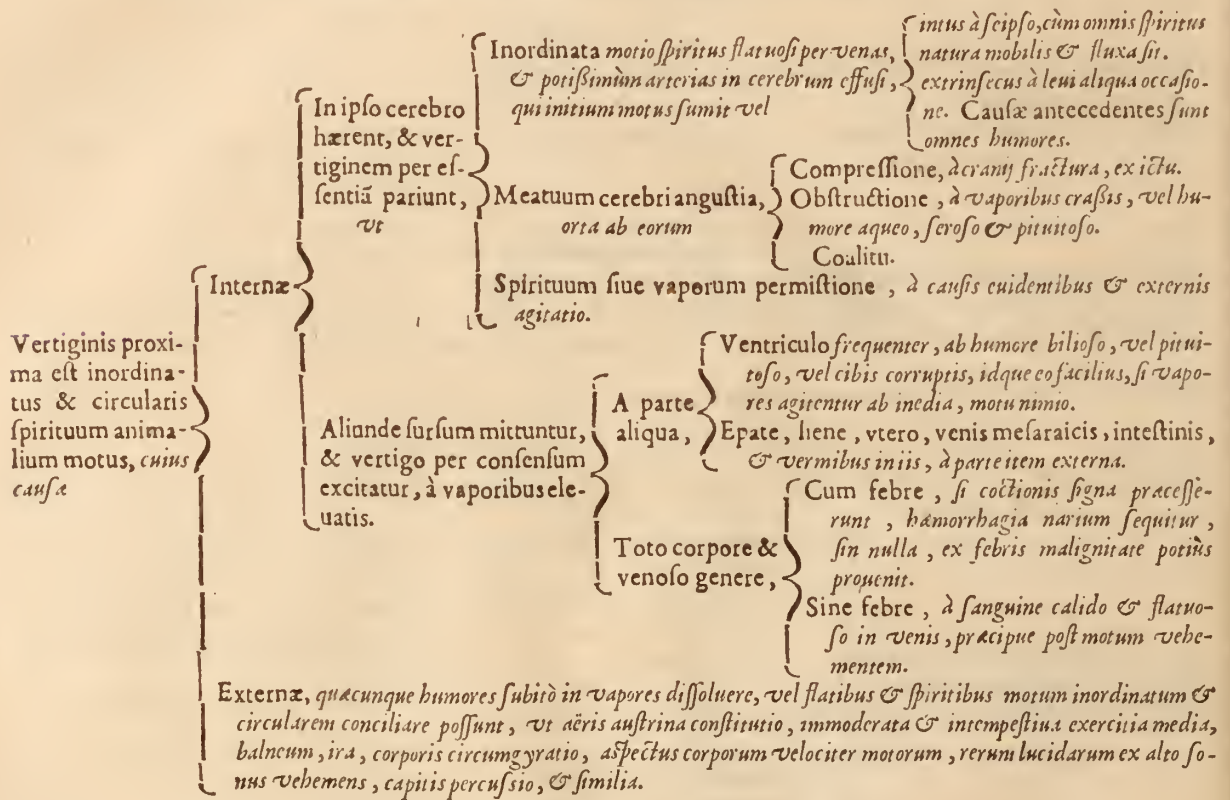 Vertiginis proxi-
ma est inordina-
tus & circularis
spirituum anima-
lium motus, cuius
causæ
Internæ
In ipso cerebro
hærent, & ver-
tiginem per es-
sentiã pariunt,
vt
Inordinata motio spiritus flatuosi per venas,
& potißimùm arterias in cerebrum effusi,
qui initium motus sumit vel
intus à seipso, cùm omnis spiritus
natura mobilis & fluxa sit.
extrinsecus à leui aliqua occasio-
ne. Causæ antecedentes sunt
omnes humores.
Meatuum cerebri angustia,
orta ab eorum
Compressione, à cranij fractura, ex ictu.
Obstructione, à vaporibus craßis, vel hu-
more aqueo, seroso & pituitoso.
Coalitu.
Spirituum siue vaporum permistione, à causis euidentibus & externis
agitatio.
Aliunde sursum mittuntur,
& vertigo per consensum
excitatur, à vaporibus ele-
uatis.
A parte
aliqua,
Ventriculo frequenter, ab humore bilioso, vel pitui-
toso, vel cibis corruptis, idque eo facilius, si vapo-
res agitentur ab inedia, motu nimio.
Epate, liene, vtero, venis mesaraicis, intestinis,
& vermibus in iis, à parte item externa.
Toto corpore &
venoso genere,
Cum febre, si coctionis signa præcesse-
runt, hæmorrhagia narium sequitur,
sin nulla, ex febris malignitate potiùs
prouenit.
Sine febre, à sanguine calido & flatuo-
so in venis, præcipue post motum vehe-
mentem.
Externæ, quæcunque humores subitò in vapores dissoluere, vel flatibus & spiritibus motum inordinatum &
circularem conciliare possunt, vt aëris austrina constitutio, immoderata & intempestiua exercitia media,
balneum, ira, corporis circumgyratio, aspectus corporum velociter motorum, rerum lucidarum ex alto so-
nus vehemens, capitis percussio, & similia.